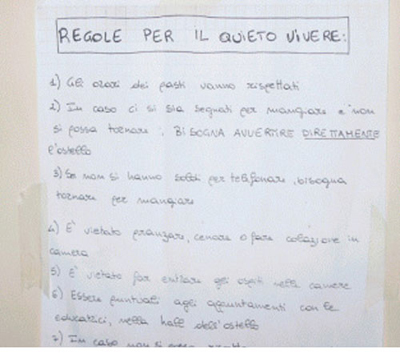 REGOLE PER IL QUIETO VIVERE:
1) Gli orari dei pasti vanno rispettati
2) In caso ci si sia segnati per mangiare e non
si possa tornare : BISOGNA AVVERTIRE DIRETTAMENTE
l'ostello
3) Se non si hanno soldi per telefonare, bisogna
tornare per mangiare
4) E' vietato pranzare, cenare o fare colazione in
camera
5) E' vietato far entrare gli ospiti nelle camere
6) Essere puntuali agli appuntamenti con le
educatrici, nella hall dell'ostello
7) In caso non si